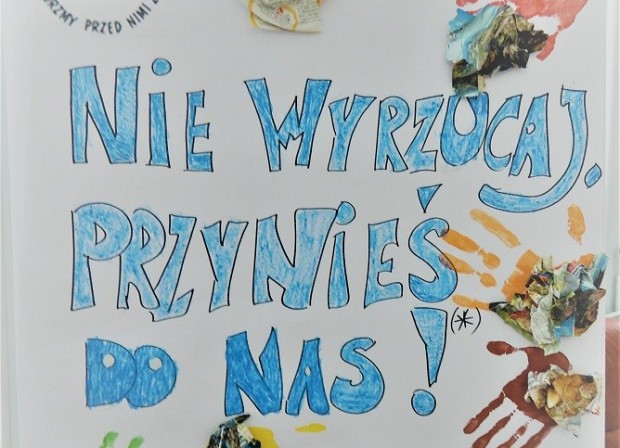 PRZED NIMI
NIE WYRZUCAJ.
PRZYNIEŚ
DO NAS! (*)